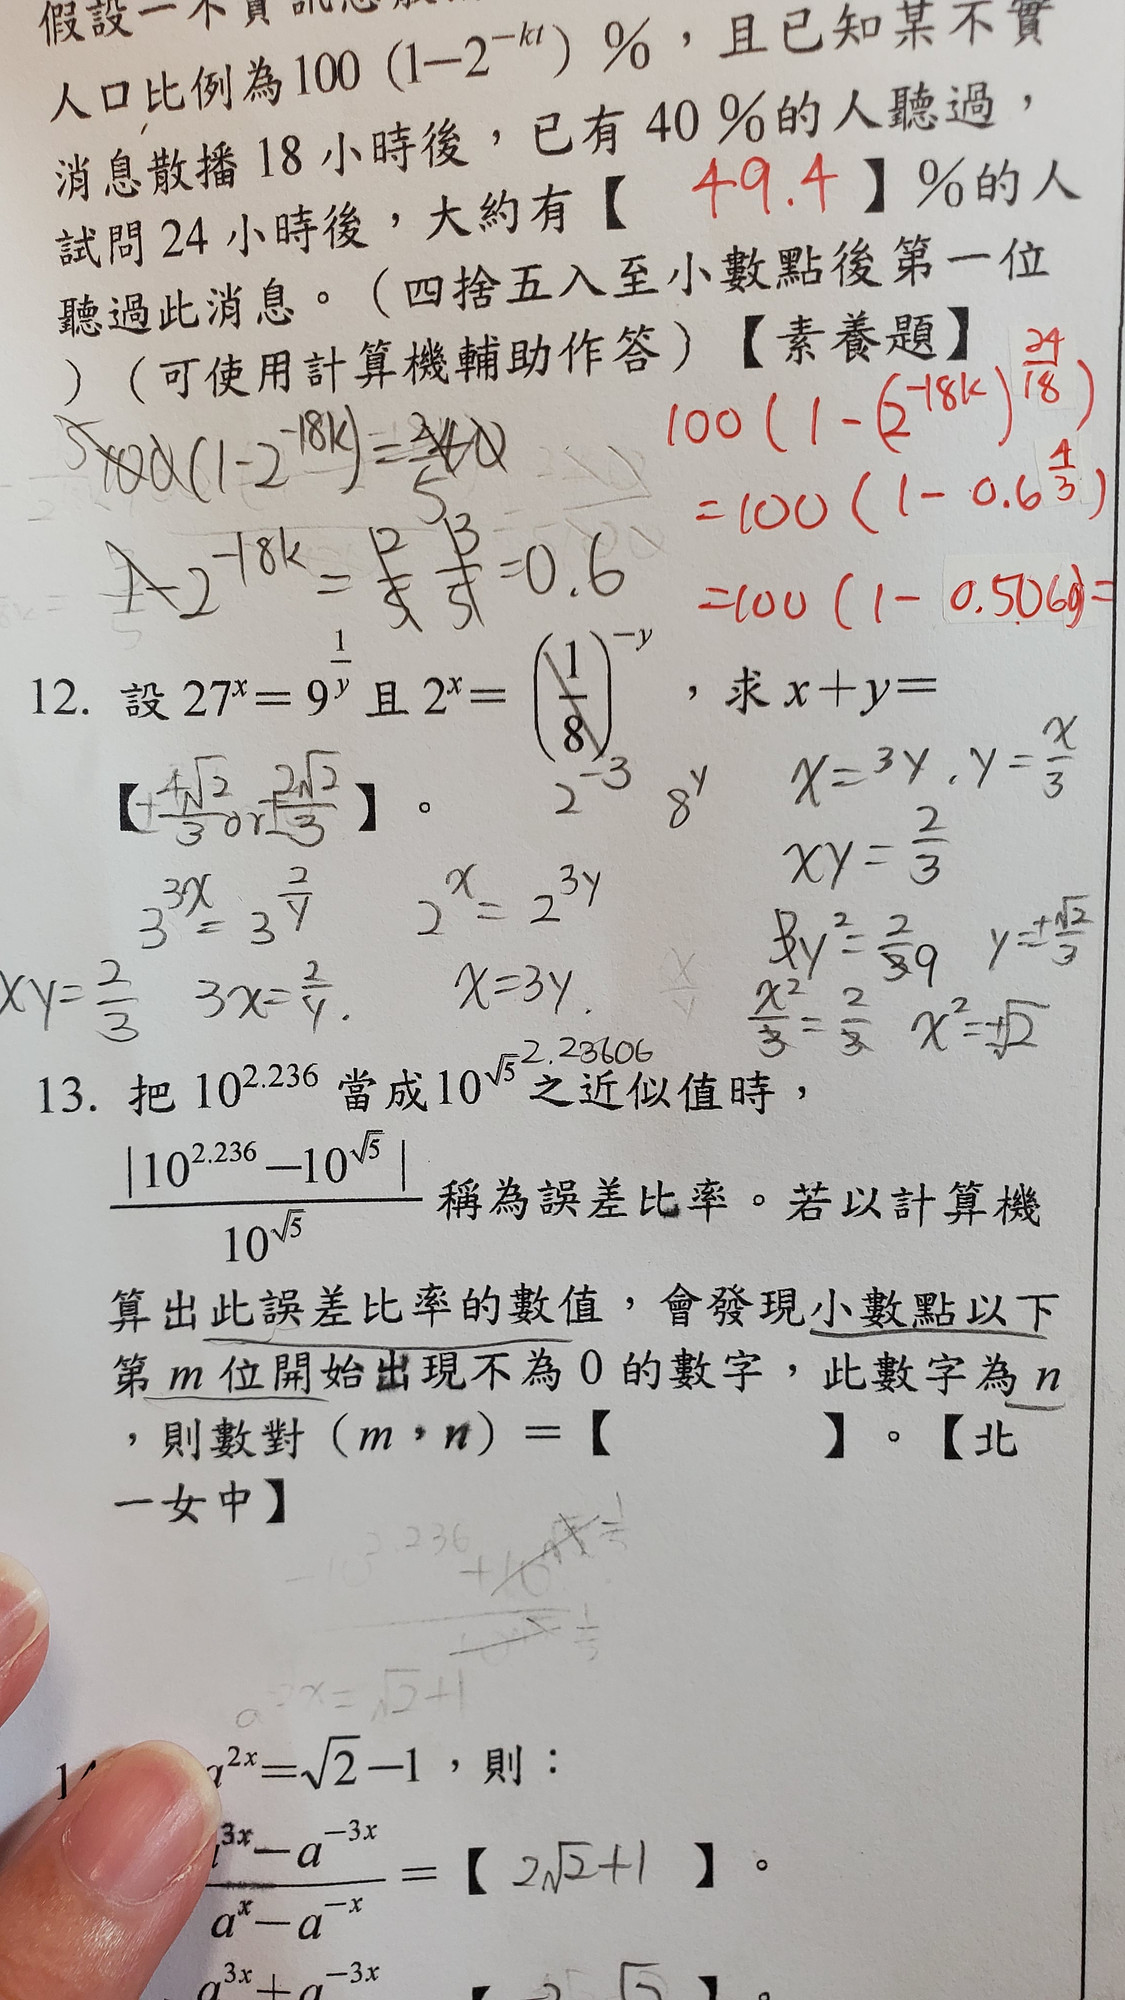 假設一不實訊息散
人口比例為100 (1−2^{−kt}) %，且已知某不實
消息散播 18 小時後，已有 40 %的人聽過，
試問 24 小時後，大約有【 49.4 】%的人
聽過此消息。（四捨五入至小數點後第一位
）（可使用計算機輔助作答）【素養題】
100(1-2^{-18k})=
100(1-(2^{-18k})^{24/18})
=100(1-0.6^{4/3})
2^{-18k} = 3/5 =0.6
=100(1-0.5060)=
12. 設 27^x＝9^{1/y} 且 2^x＝(1/8)^{−y}，求 x＋y＝
【±4√2/3 or ±2√2/3】。
2^{-3} 8^y
x=3y, y=x/3
xy=2/3
3^{3x}=3^{2/y} 2^x=2^{3y}
y^2=2/9 y=±√2/3
xy=2/3 3x=2/y. x=3y.
x^2/3=2/3 x^2=±√2
2.23606
13. 把 10^{2.236} 當成10^{√5}之近似值時，
|10^{2.236}−10^{√5}|/10^{√5} 稱為誤差比率。若以計算機
算出此誤差比率的數值，會發現小數點以下
第 m 位開始出現不為 0 的數字，此數字為 n
，則數對（m，n）＝【 】。【北
一女中】
a^{-2x}=√2+1
a^{2x}=√2−1，則：
a^{3x}−a^{−3x}/a^x−a^{−x}＝【 2√2+1 】。
a^{3x}+a^{−3x}